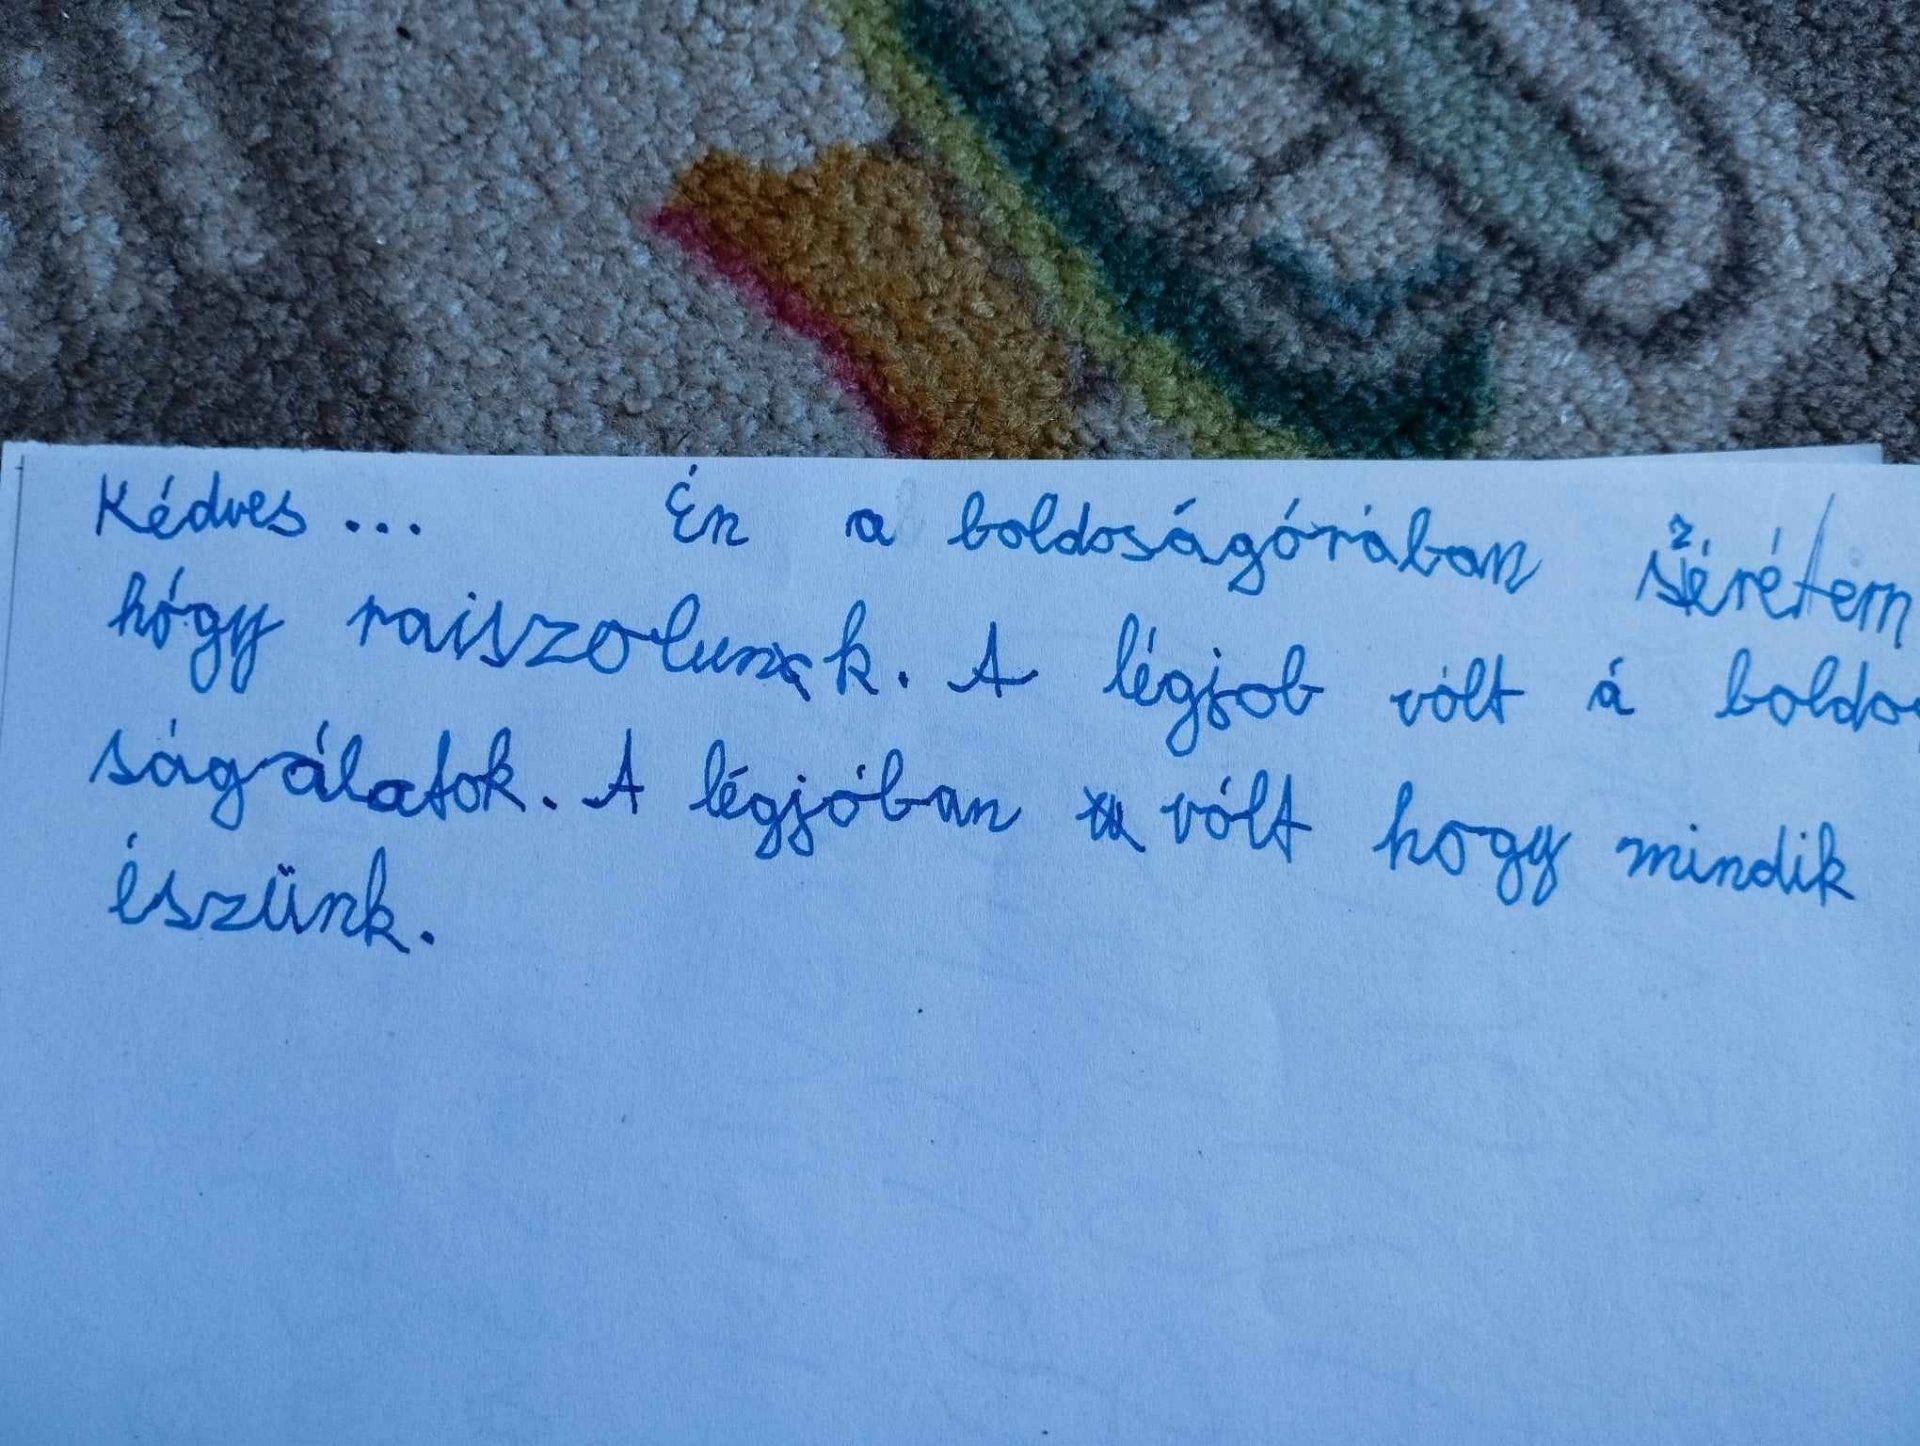 Kédves... Én a boldoságórában szérétem
hógy raiszolunk. A légjob vólt á boldo-
ságálatok. A légjóban vólt hogy mindik
észünk.